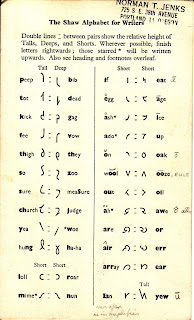 NORMAN T. JENKS
725 S.E. 38th AVENUE
PORTLAND 15 OREGON
The Shaw Alphabet for Writers
Double lines : between pairs show the relative height of
Talls, Deeps, and Shorts. Wherever possible, finish
letters rightwards; those starred * will be written
upwards. Also see heading and footnotes overleaf.
Tall Deep Short Short
peep 𐑐 : 𐑚 bib if 𐑦 : 𐑰 eat
tot 𐑑 : 𐑛 dead egg 𐑧 : 𐑱 age
kick 𐑒 : 𐑜 gag ash* 𐑨 : 𐑲 ice
fee 𐑓 : 𐑝 vow ado* 𐑩 : 𐑳 up
thigh 𐑔 : 𐑞 they on 𐑪 : 𐑴 oak
so 𐑕 : 𐑟 zoo wool 𐑫 : 𐑵 ooze
sure 𐑖 : 𐑠 measure out 𐑬 : 𐑶 oil
church 𐑗 : 𐑡 judge ah* 𐑭 : 𐑷 awe
yea 𐑘 : 𐑢 *woe are 𐑸 : 𐑹 or
hung 𐑙 : 𐑣 ha-ha air 𐑺 : 𐑻 err
Short Short array 𐑼 : 𐑽 ear
loll 𐑤 : 𐑮 roar Tall
mime* 𐑥 : 𐑯 nun Ian 𐑾 : 𐑿 yew